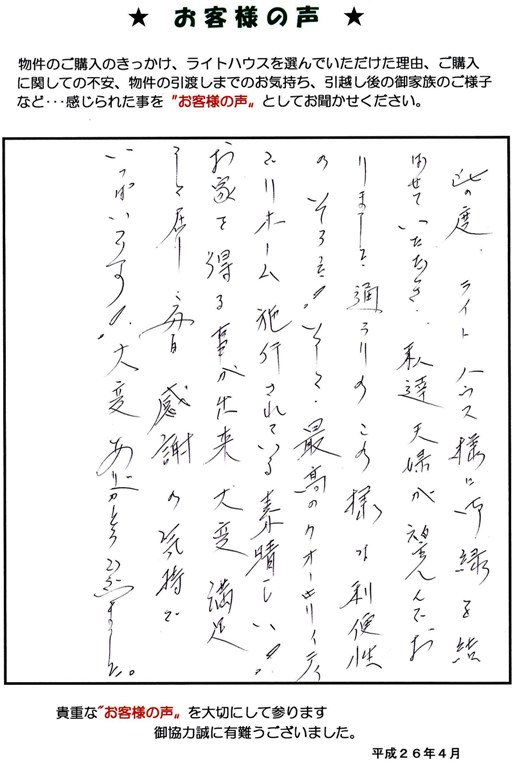 ★ お客様の声 ★
物件のご購入のきっかけ、ライトハウスを選んでいただけた理由、ご購入
に関しての不安、物件の引渡しまでのお気持ち、引越し後の御家族のご様子
など･･･感じられた事を〝お客様の声〟としてお聞かせください。
此の度、ライトハウス様に御縁を結
ばせていただき、私達夫婦が望んでお
りました通りのこの様な利便性
のいい所!そして、最高のクオーリィティ
でリホーム施行されている素晴しい!
お家を得る事が出来大変満足
して居り毎日感謝の気持で
いっぱいです!大変ありがとうございました。
貴重な〝お客様の声〟を大切にして参ります
御協力誠に有難うございました。
平成26年4月